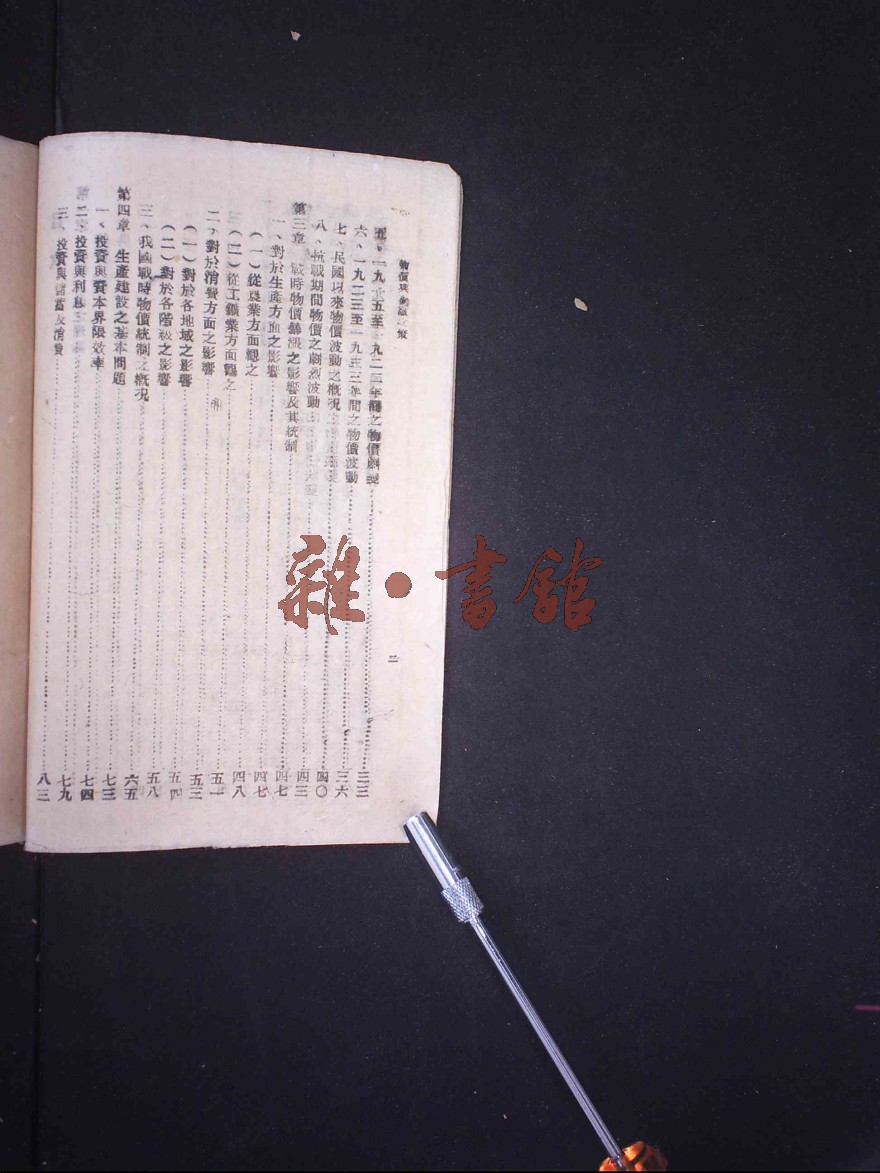 物價與金融政策
二
五、一九一五至一九二三年間之物價劇變……三三
六、一九二三至一九三三年間之物價波動……三六
七、民國以來物價波動之概況……四〇
八、抗戰期間物價之劇烈波動……四三
第三章 戰時物價暴漲之影響及其統制……四七
一、對於生產方面之影響……四七
（一）從農業方面觀之……四八
（二）從工鑛業方面觀之……五一
二、對於消費方面之影響……五三
（一）對於各地域之影響……五四
（二）對於各階級之影響……五八
三、我國戰時物價統制之概況……六五
第四章 生產建設之基本問題……七三
一、投資與資本界限效率……七四
二、投資與利息……七九
三、投資與儲蓄及消費……八三
雜·書館